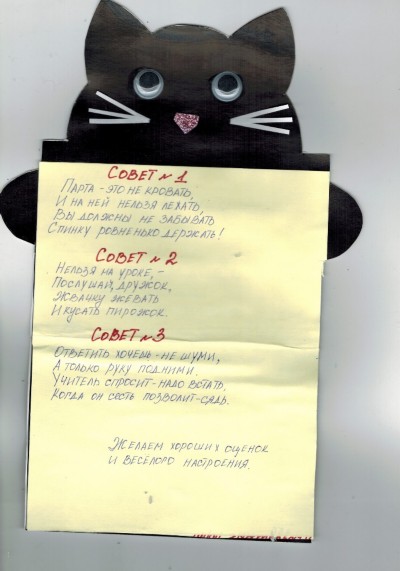 СОВЕТ №1
ПАРТА - ЭТО НЕ КРОВАТЬ,
И НА НЕЙ НЕЛЬЗЯ ЛЕЖАТЬ,
ВЫ ДОЛЖНЫ НЕ ЗАБЫВАТЬ
СПИНКУ РОВНЕНЬКО ДЕРЖАТЬ!
СОВЕТ №2
НЕЛЬЗЯ НА УРОКЕ, -
ПОСЛУШАЙ, ДРУЖОК,
ЖВАЧКУ ЖЕВАТЬ
И КУСАТЬ ПИРОЖОК.
СОВЕТ №3
ОТВЕТИТЬ ХОЧЕШЬ - НЕ ШУМИ,
А ТОЛЬКО РУКУ ПОДНИМИ.
УЧИТЕЛЬ СПРОСИТ - НАДО ВСТАТЬ,
КОГДА ОН СЕСТЬ ПОЗВОЛИТ - СЯДЬ.
ЖЕЛАЕМ ХОРОШИХ ОЦЕНОК
И ВЕСЁЛОГО НАСТРОЕНИЯ.